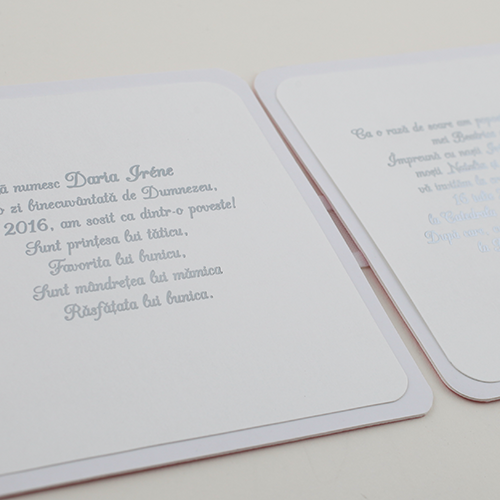 ă numesc Daria Iréne
o zi binecuvântată de Dumnezeu,
2016, am sosit ca dintr-o poveste!
Sunt prințesa lui tăticu,
Favorita lui bunicu,
Sunt mândrețea lui mămica
Răsfățata lui bunica.
Ca o rază de soare am
mei Beatrice
Împreună cu nașii
moșii Natalia
vă invităm la
la
După care,